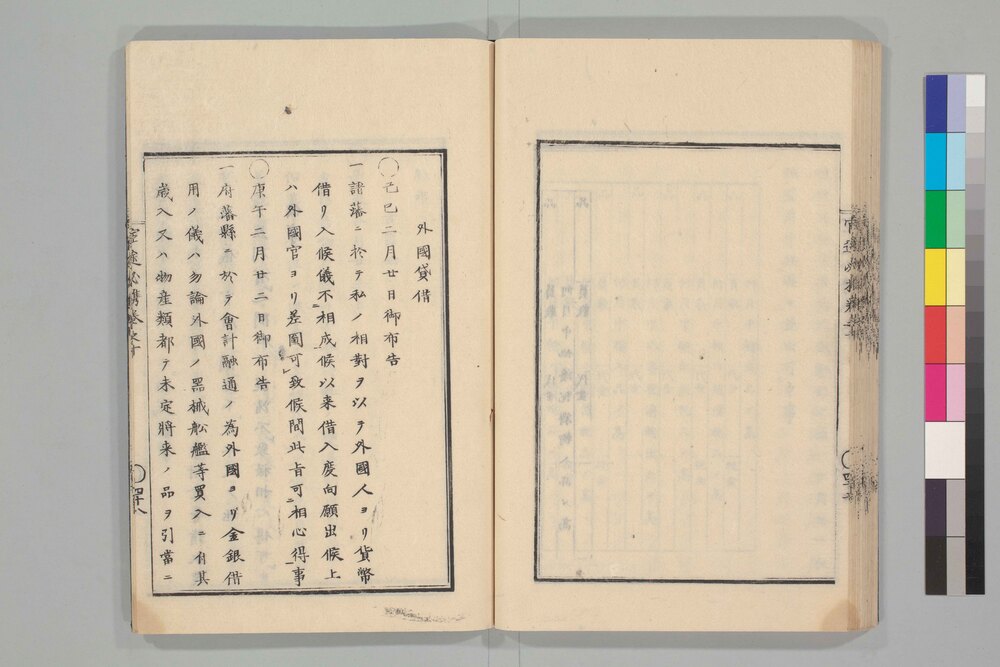 外國貸借
己巳二月廿日御布告
一諸藩ニ於テ私ノ相對ヲ以テ外國人ヨリ貨幣
借リ入候儀不相成候以来借入度向願出候上
ハ外國官ヨリ差圖可致候間此旨可相心得事
庚午二月廿二日御布告
一府藩縣ニ於テ會計融通ノ為外國ヨリ金銀借
用ノ儀ハ勿論外國ノ器械舩艦等買入ニ付其
歳入又ハ物産類都テ未定將来ノ品ヲ引當ニ